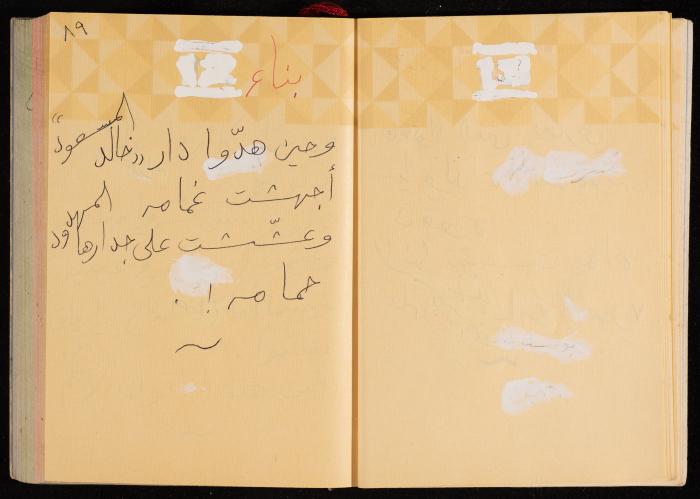 ٨٩
بناء
وحين هدّوا دار "خالد المسعود"
أجهشت غمامه
وعشّشت على جدارها المهدود
حمامه !.